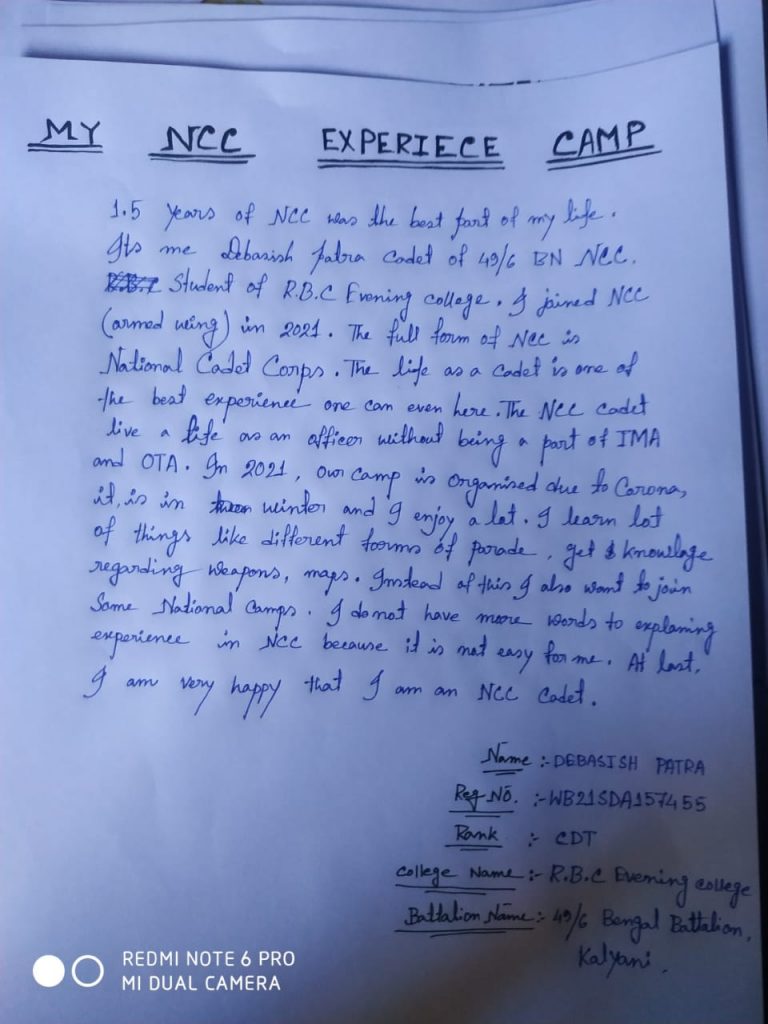 MY NCC EXPERIECE CAMP
1.5 years of NCC was the best part of my life.
Its me Debasish patra cadet of 49/6 BN NCC.
Student of R.B.C Evening college. I joined NCC
(armed wing) in 2021. The full form of NCC is
National Cadet Corps. The life as a cadet is one of
the best experience one can even here. The NCC cadet
live a life as an officer without being a part of IMA
and OTA. In 2021, our camp is organised due to Corona,
it, is in winter and I enjoy a lot. I learn lot
of things like different forms of parade, get knowlage
regarding weapons, maps. Instead of this I also want to join
Some National Camps. I do not have more words to explaning
experience in NCC because it is not easy for me. At last,
I am very happy that I am an NCC Cadet.
Name :- DEBASISH PATRA
Reg No. :- WB21SDA157455
Rank :- CDT
College Name :- R.B.C Evening college
Battalion Name :- 49/6 Bengal Battalion,
Kalyani.
REDMI NOTE 6 PRO
MI DUAL CAMERA